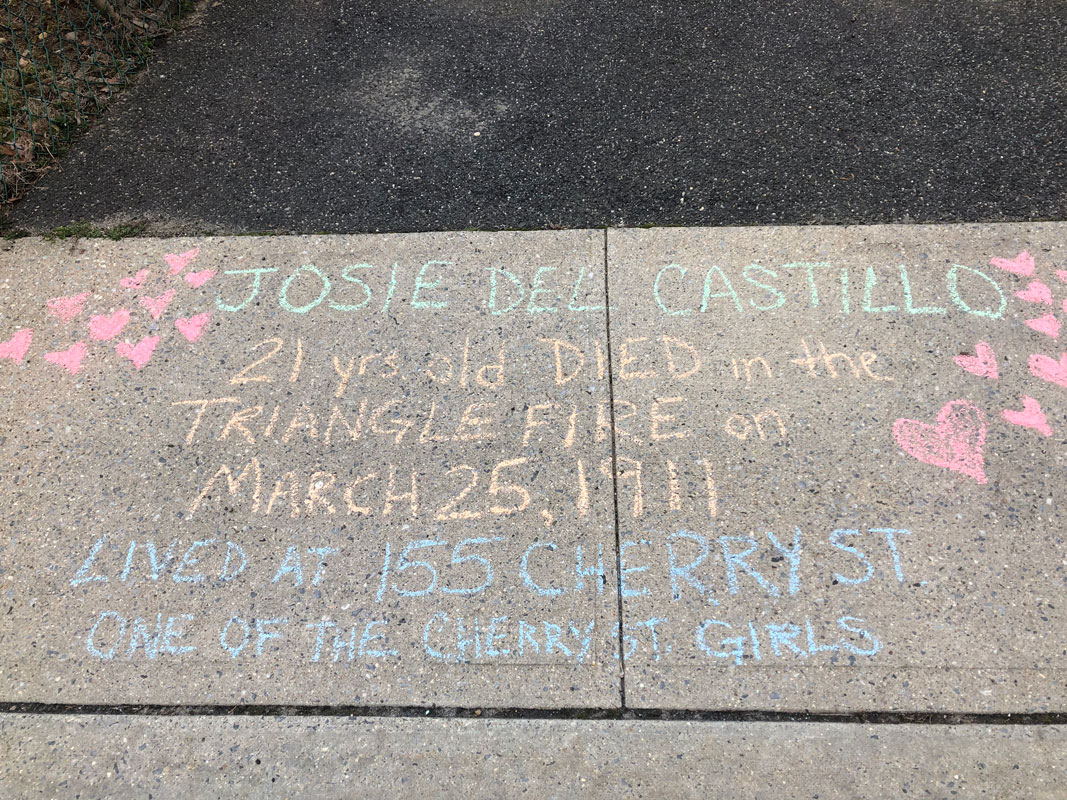 JOSIE DEL CASTILLO
21 yrs old DIED in the
TRIANGLE FIRE on
MARCH 25, 1911
LIVED AT 155 CHERRY ST.
ONE OF THE CHERRY ST. GIRLS